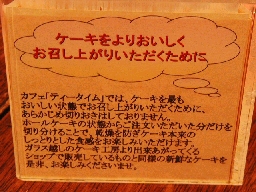 ケーキをよりおいしく
お召し上がりいただくために
カフェ「ティータイム」では、ケーキを最も
おいしい状態でお召し上がりいただくために、
あらかじめ切りおきはしておりません。
ホールケーキの状態からご注文いただいた分だけを
切り分けることで、乾燥を防ぎケーキ本来の
しっとりとした食感をお楽しみいただけます。
ガラス越しのケーキ工房より出来あがってくる
ショップで販売しているものと同様の新鮮なケーキを
是非、お楽しみくださいませ。